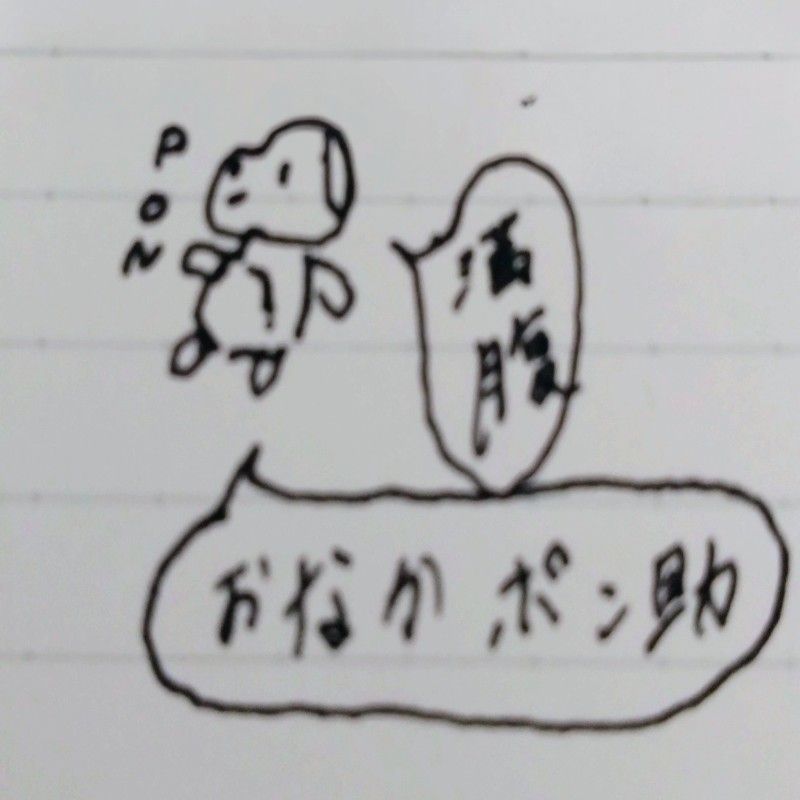 PON
満腹
おなかポン助